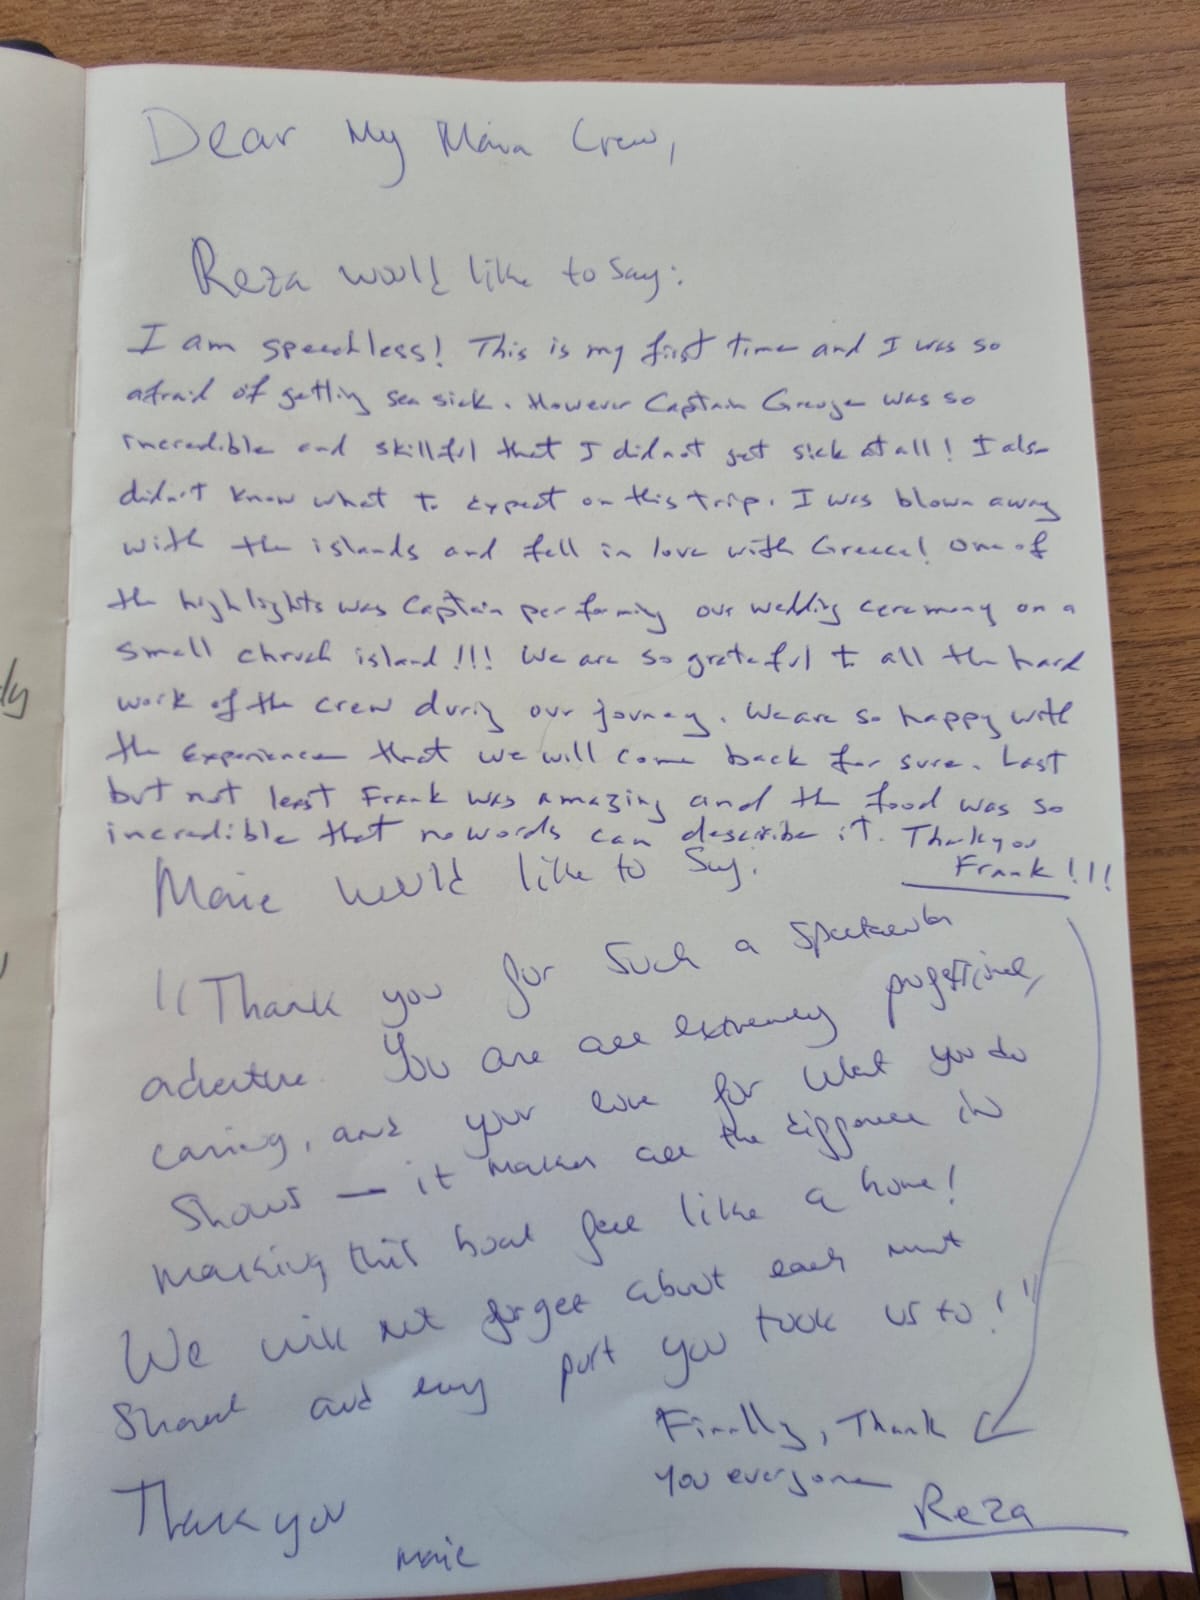 Dear My Mara Crew,
Reza would like to say:
I am speechless! This is my first time and I was so
afraid of getting sea sick. However Captain was so
incredible and skillful that I did not get sick at all! I also
didn't know what to expect on this trip. I was blown away
with the islands and fell in love with Greece! One of
the highlights was Captain performing our wedding ceremony on a
small chruch island!!! We are so grateful to all the hard
work of the crew during our journey. We are so happy with
the experience that we will come back for sure. Last
but not least Frank was amazing and the food was so
incredible that no words can describe it. Thank you
Frank!!!
would like to say:
"Thank you for such a spectacular
adventure. You are all extremely professional,
caring, and your love for what you do
shows — it makes all the difference in
making this boat feel like a home!
We will not forget about each
shared and every port you took us to!"
Finally, Thank
you everyone
Reza
Thank you